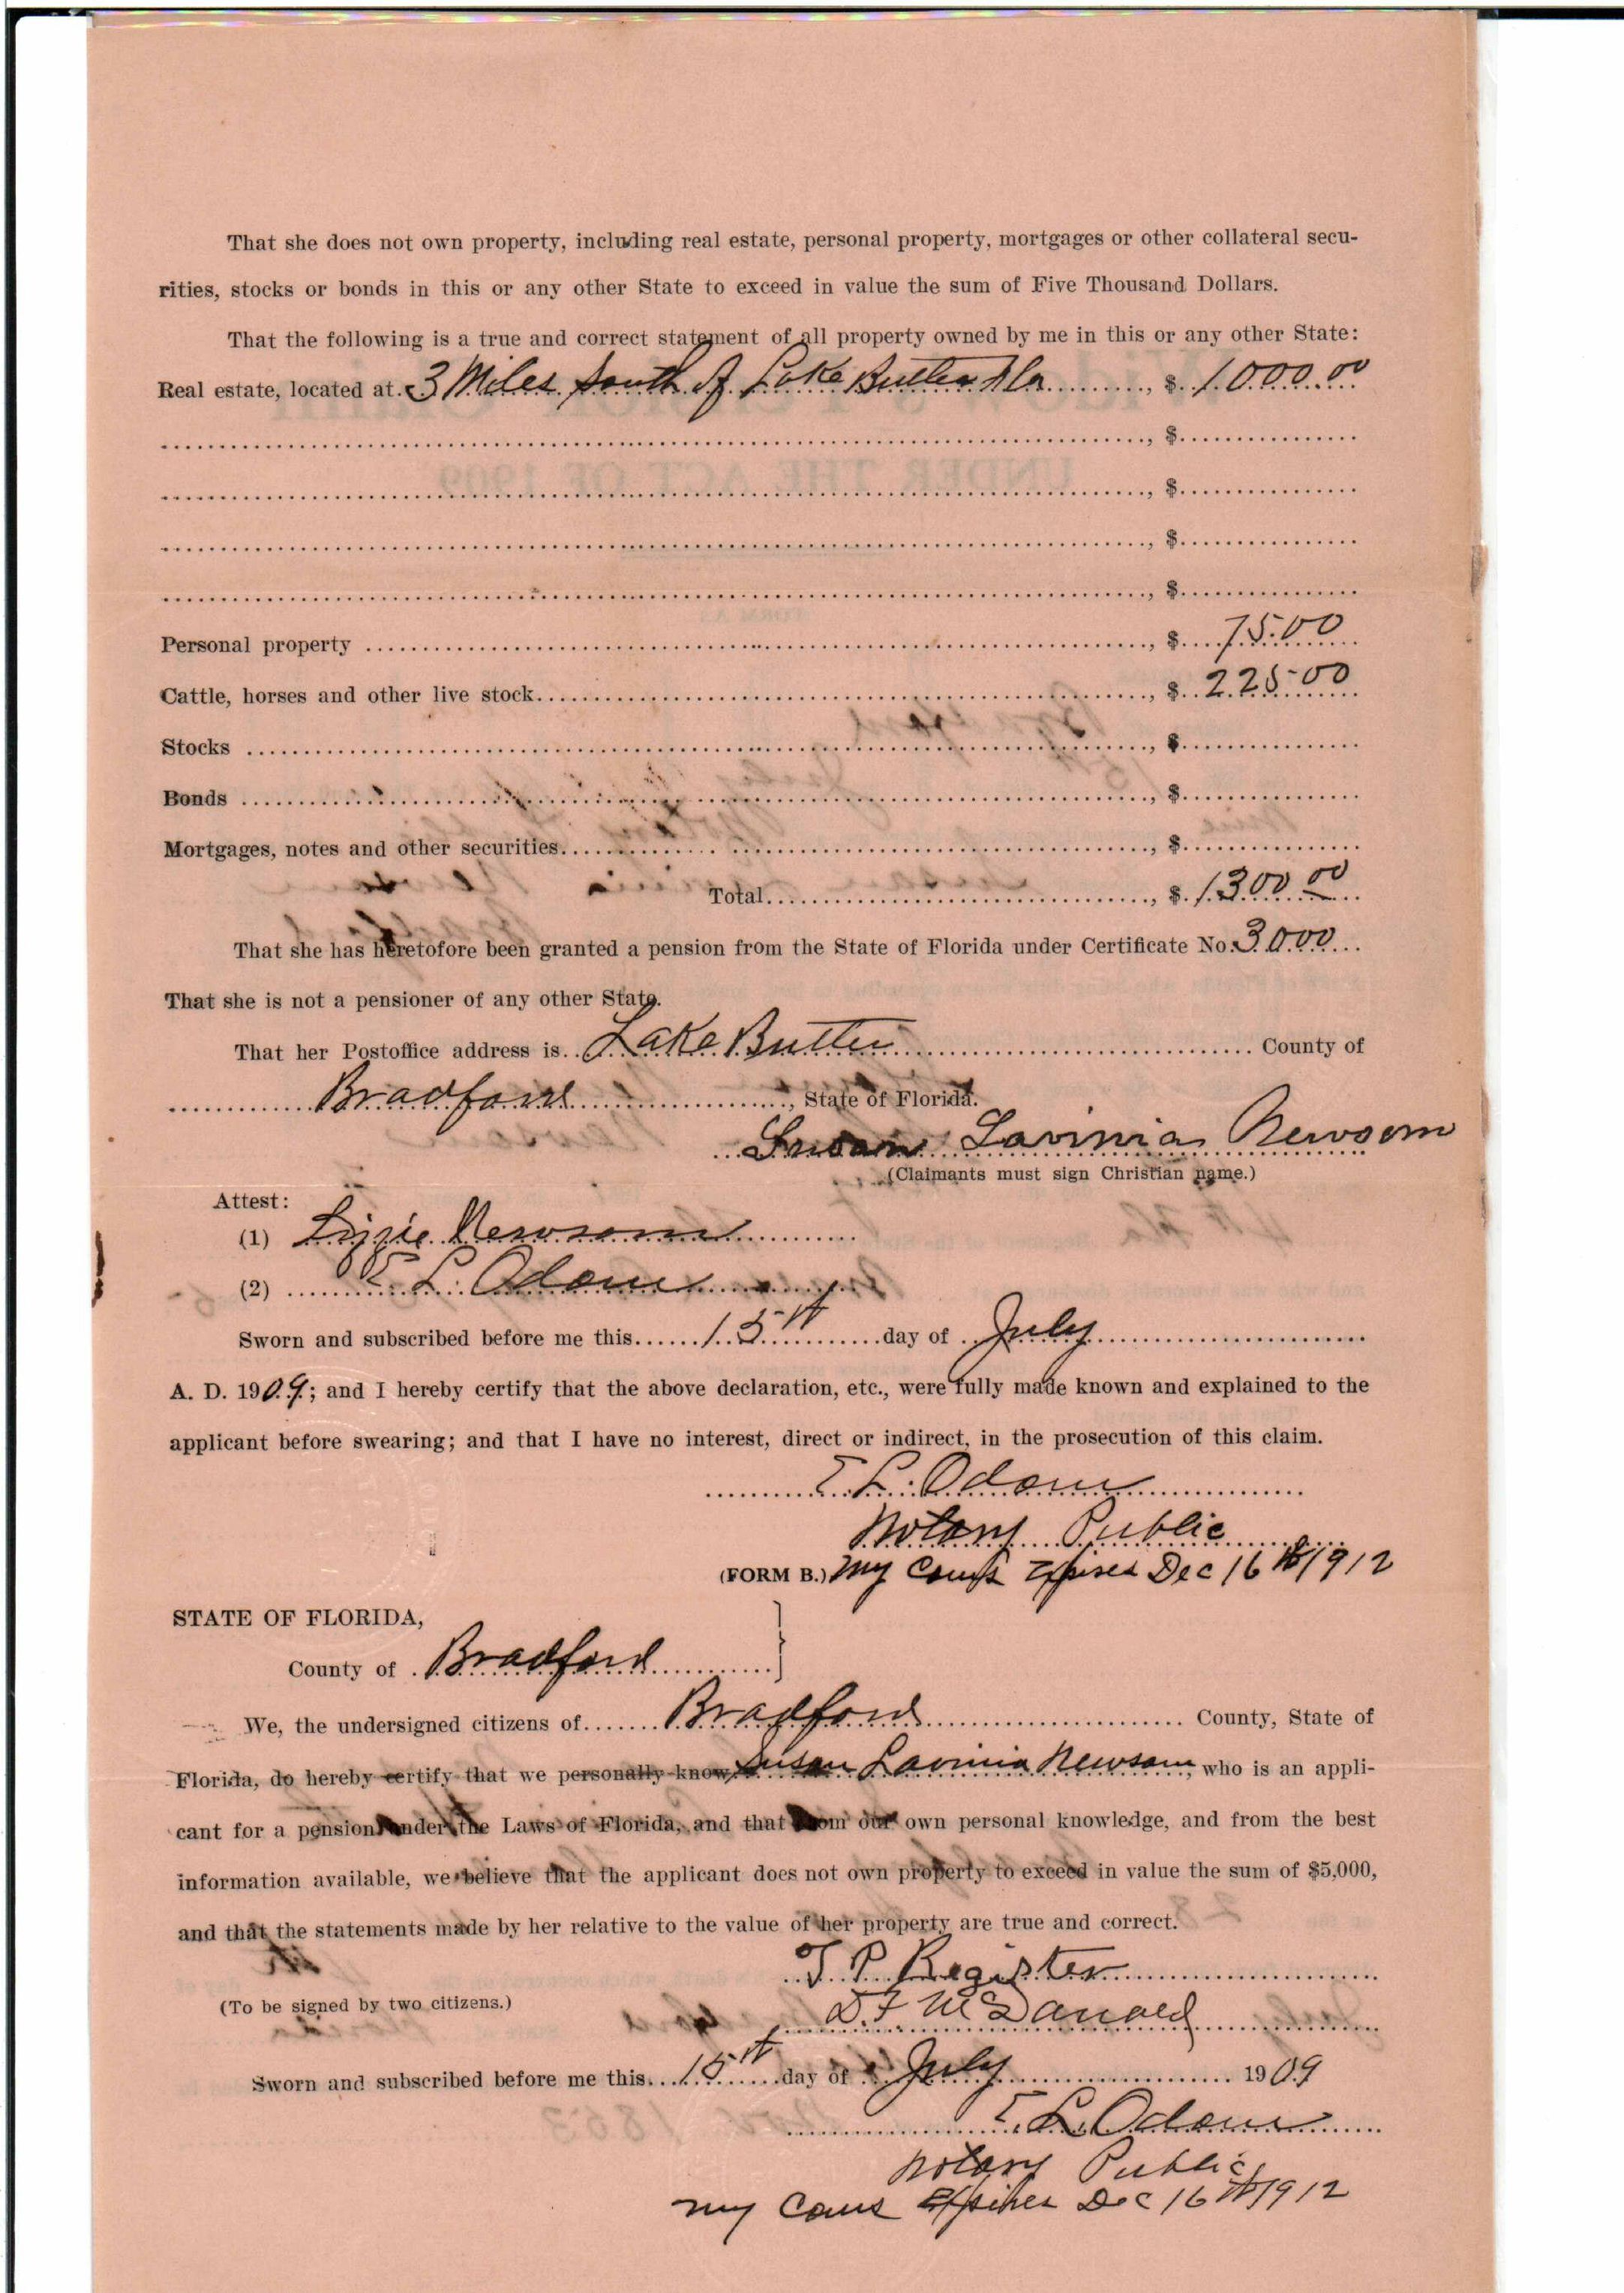 That she does not own property, including real estate, personal property, mortgages or other collateral secu-
rities, stocks or bonds in this or any other State to exceed in value the sum of Five Thousand Dollars.
That the following is a true and correct statement of all property owned by me in this or any other State:
Real estate, located at. 3 Miles South of Lake Butler Fla ........, $ 1000.00
........, $........
........, $........
........, $........
........, $........
Personal property ........, $ 75.00
Cattle, horses and other live stock........, $ 225.00
Stocks ........, $........
Bonds ........, $........
Mortgages, notes and other securities........, $........
Total........, $ 1300.00
That she has heretofore been granted a pension from the State of Florida under Certificate No. 3000
That she is not a pensioner of any other State.
That her Postoffice address is.. Lake Butler ........ County of
........ Bradford ........, State of Florida.
Susan Lavinia Newsom
(Claimants must sign Christian name.)
Attest:
(1) Lizzie Newsom
(2) E. L. Odom
Sworn and subscribed before me this...... 15th ......day of .. July ........
A. D. 1909; and I hereby certify that the above declaration, etc., were fully made known and explained to the
applicant before swearing; and that I have no interest, direct or indirect, in the prosecution of this claim.
E L. Odom
Notary Public
(FORM B.) My Coms Expires Dec 16th 1912
STATE OF FLORIDA,
County of . Bradford ........}
We, the undersigned citizens of...... Bradford ........ County, State of
Florida, do hereby certify that we personally know Susan Lavinia Newsom, who is an appli-
cant for a pension under the Laws of Florida, and that from our own personal knowledge, and from the best
information available, we believe that the applicant does not own property to exceed in value the sum of $5,000,
and that the statements made by her relative to the value of her property are true and correct.
T P Register
(To be signed by two citizens.)
D. F McDanald
Sworn and subscribed before me this.. 15th ....day of .. July ........ 1909
E. L. Odom
Notary Public
My Coms Expires Dec 16th 1912